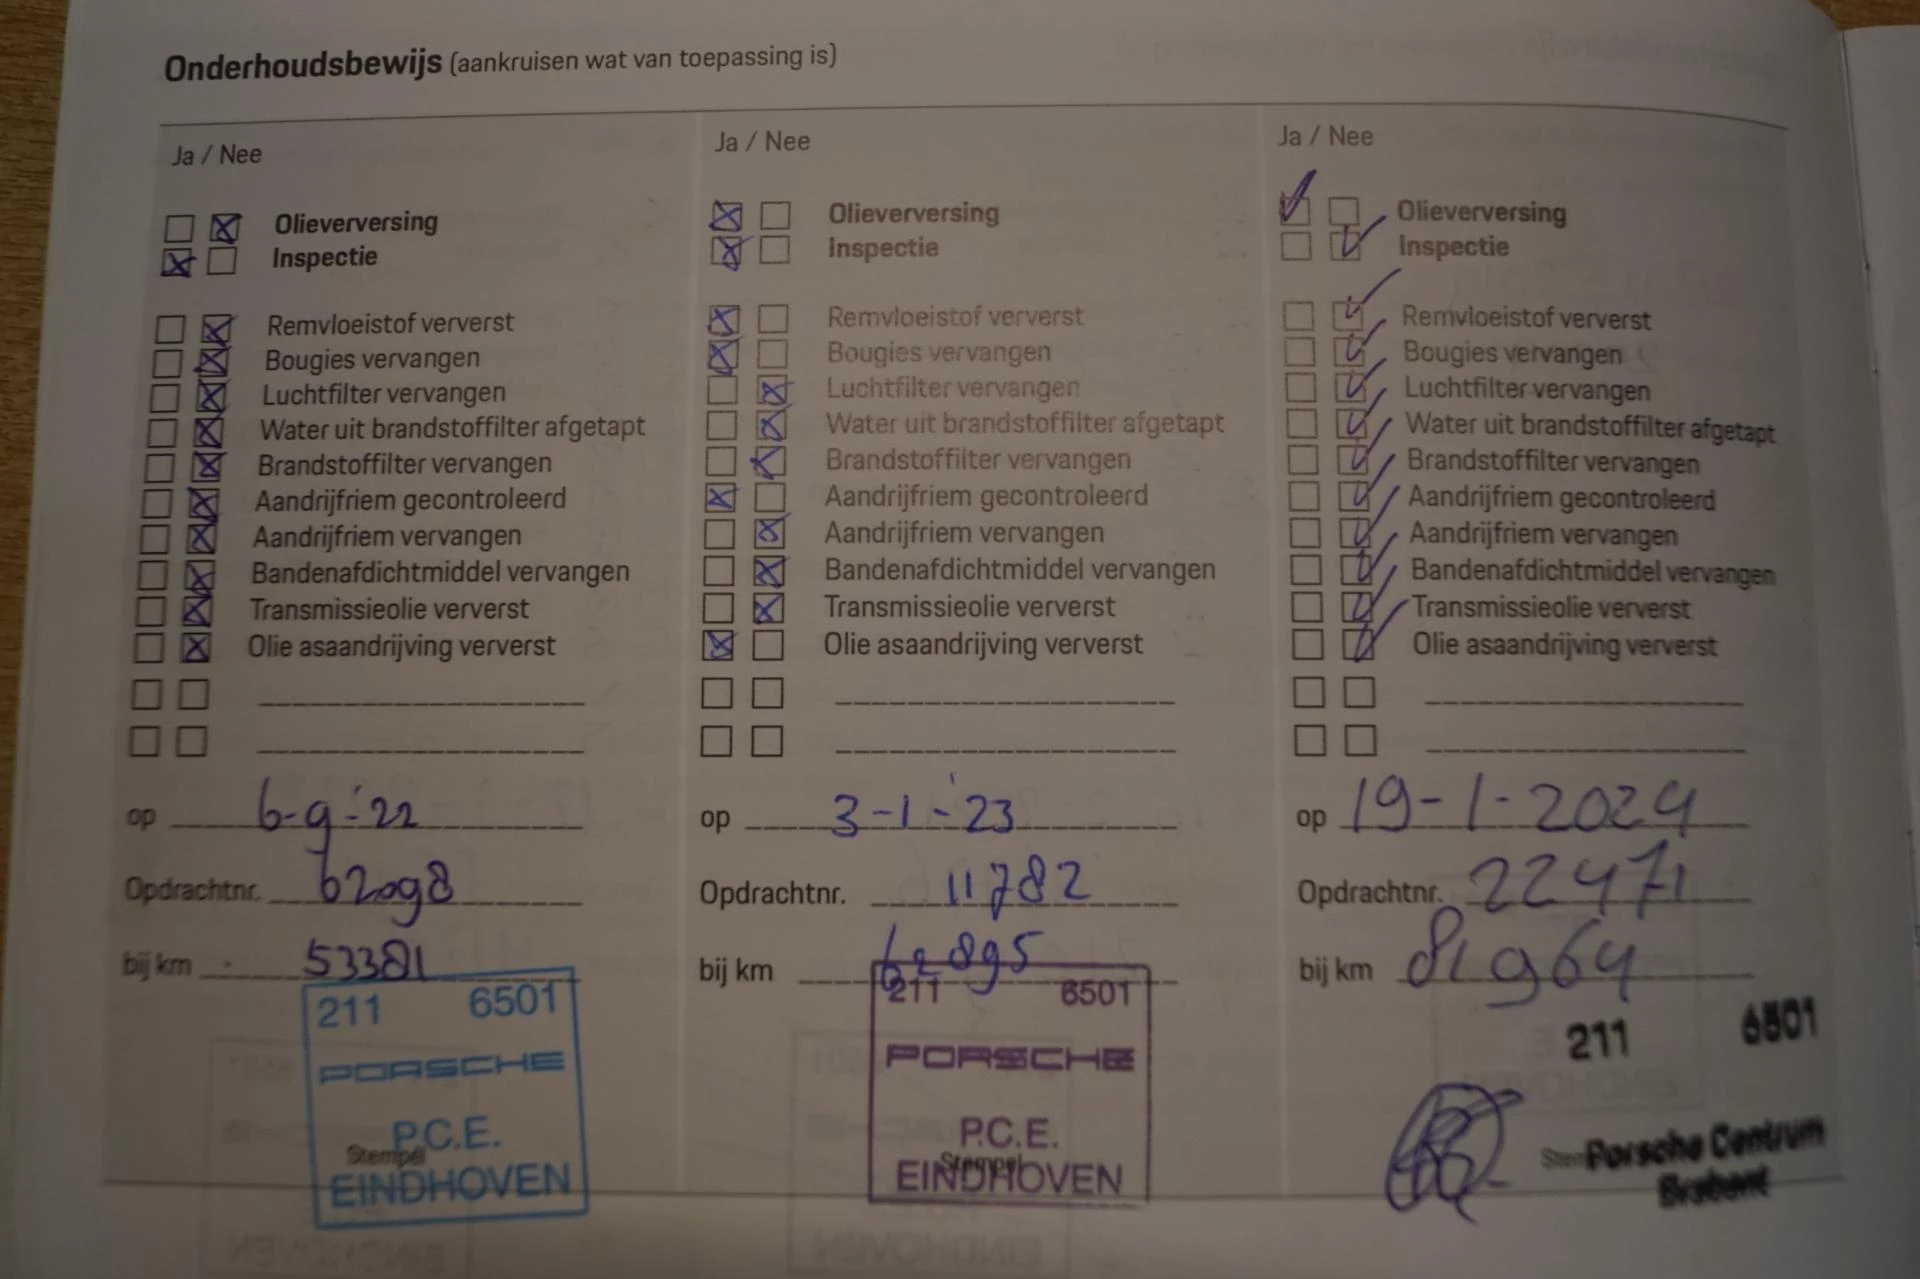 Onderhoudsbewijs (aankruisen wat van toepassing is)
Ja / Nee
Olieverversing
Inspectie
Remvloeistof ververst
Bougies vervangen
Luchtfilter vervangen
Water uit brandstoffilter afgetapt
Brandstoffilter vervangen
Aandrijfriem gecontroleerd
Aandrijfriem vervangen
Bandenafdichtmiddel vervangen
Transmissieolie ververst
Olie asaandrijving ververst
op 6-9-'22
Opdrachtnr. 62098
bij km 53381
211 6501
PORSCHE
P.C.E.
Stempel
EINDHOVEN
Ja / Nee
Olieverversing
Inspectie
Remvloeistof ververst
Bougies vervangen
Luchtfilter vervangen
Water uit brandstoffilter afgetapt
Brandstoffilter vervangen
Aandrijfriem gecontroleerd
Aandrijfriem vervangen
Bandenafdichtmiddel vervangen
Transmissieolie ververst
Olie asaandrijving ververst
op 3-1-'23
Opdrachtnr. 11782
bij km 62895
211 6501
PORSCHE
P.C.E.
Stempel
EINDHOVEN
Ja / Nee
Olieverversing
Inspectie
Remvloeistof ververst
Bougies vervangen
Luchtfilter vervangen
Water uit brandstoffilter afgetapt
Brandstoffilter vervangen
Aandrijfriem gecontroleerd
Aandrijfriem vervangen
Bandenafdichtmiddel vervangen
Transmissieolie ververst
Olie asaandrijving ververst
op 19-1-2024
Opdrachtnr. 22471
bij km 81964
211 6501
Porsche Centrum
Brabant